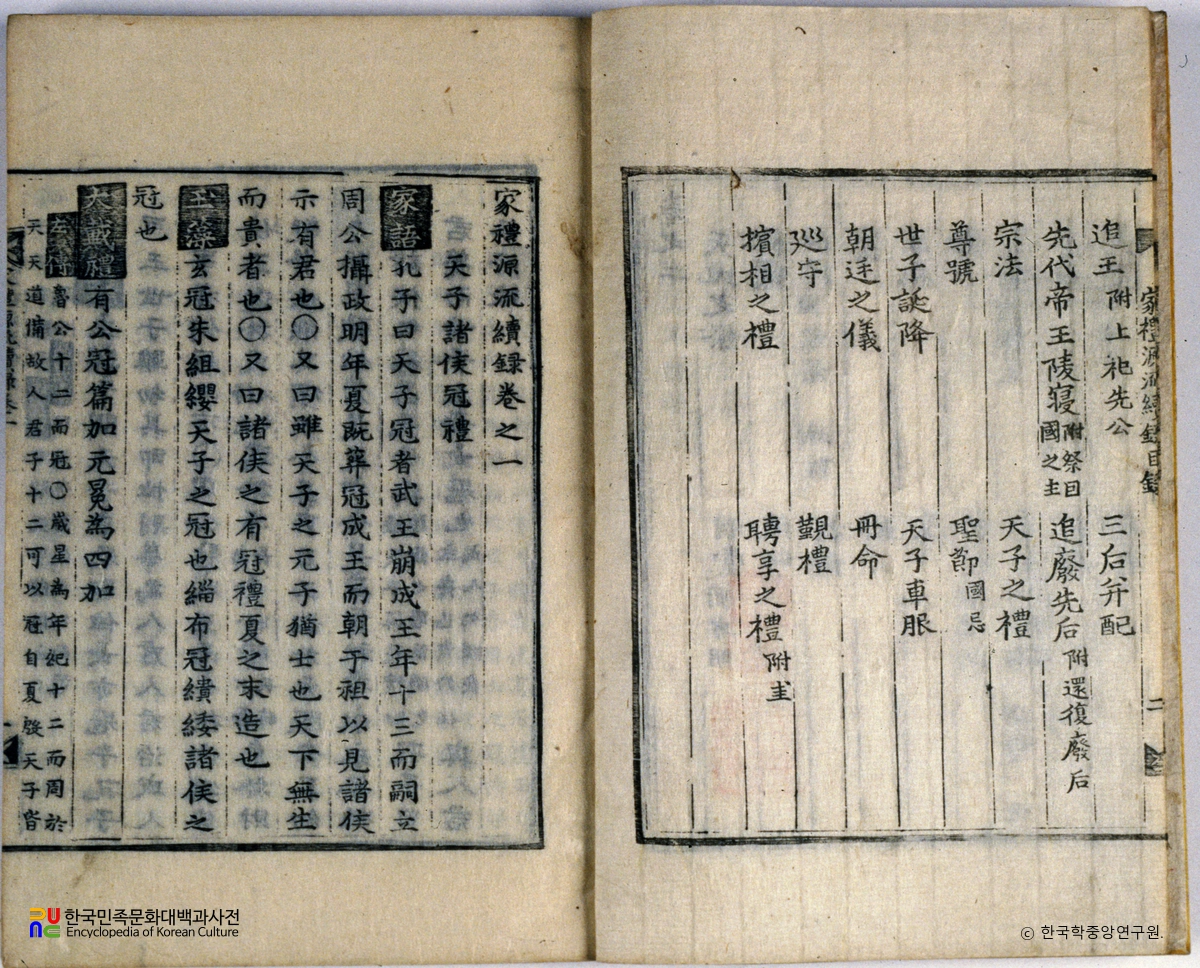 追王附上祀先公 三后并配
先代帝王陵寢附祭因國之主 追廢先后附還復廢后
宗法 天子之禮
尊號 聖節國忌
世子誕降 天子車服
朝廷之儀 冊命
巡守 覲禮
擯相之禮 聘享之禮附圭
家禮源流續錄目錄
二
家禮源流續錄卷之一
天子諸侯冠禮
家語孔子曰天子冠者武王崩成王年十三而嗣立
周公攝政明年夏既葬冠成王而朝于祖以見諸侯
示有君也○又曰雖天子之元子猶士也天下無生
而貴者也○又曰諸侯之有冠禮夏之末造也
玉藻玄冠朱組纓天子之冠也緇布冠繢緌諸侯之
冠也
大戴禮有公冠篇加元冕為四加
左傳魯公十二而冠○歲星為年紀十二而周於
天天道備故人君子十二可以冠自夏殷天子皆
한국민족문화대백과사전
Encyclopedia of Korean Culture
© 한국학중앙연구원.